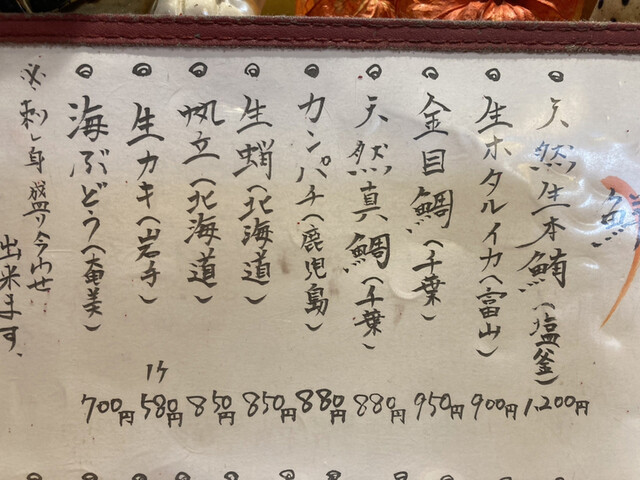 ◎天然生本鮪（塩釜）1,200円
◎生ホタルイカ（富山）900円
◎金目鯛（千葉）950円
◎天然真鯛（千葉）880円
◎カンパチ（鹿児島）880円
◎生蛸（北海道）850円
◎帆立（北海道）850円
◎生カキ（岩手）1ケ 580円
◎海ぶどう（奄美）700円
※刺し身盛り合わせ
出来ます、